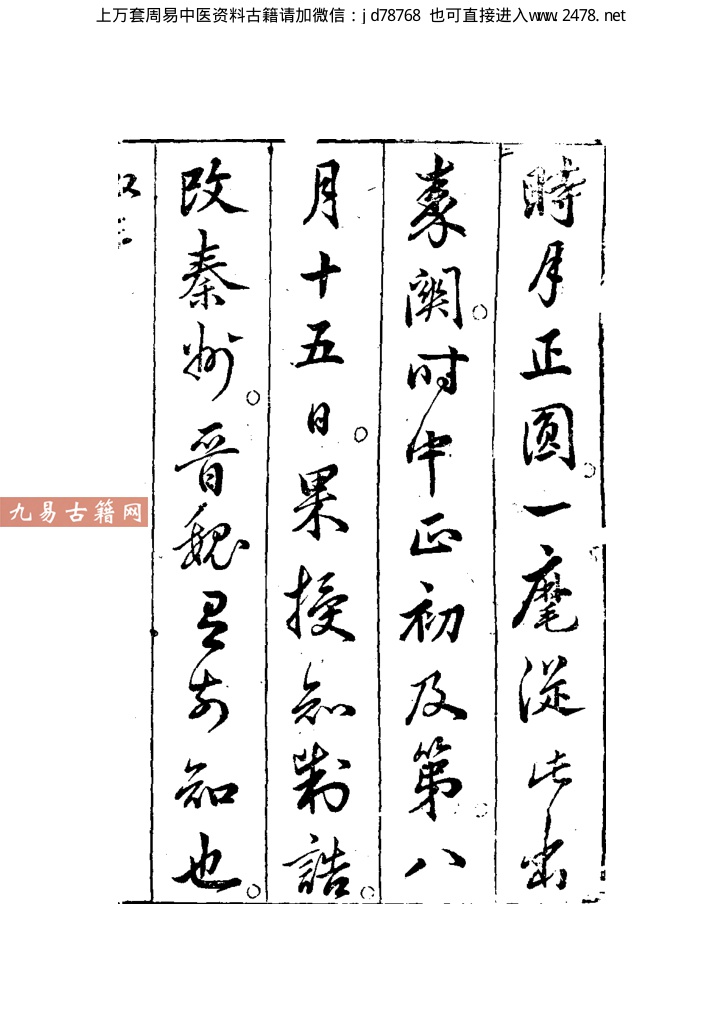 上万套周易中医资料古籍请加微信：jd78768 也可直接进入www.2478.net
時月正圓一麾從此出
秦關时中正初及第八
月十五日果授知制誥
改秦州晋魏是前知也
九易古籍网